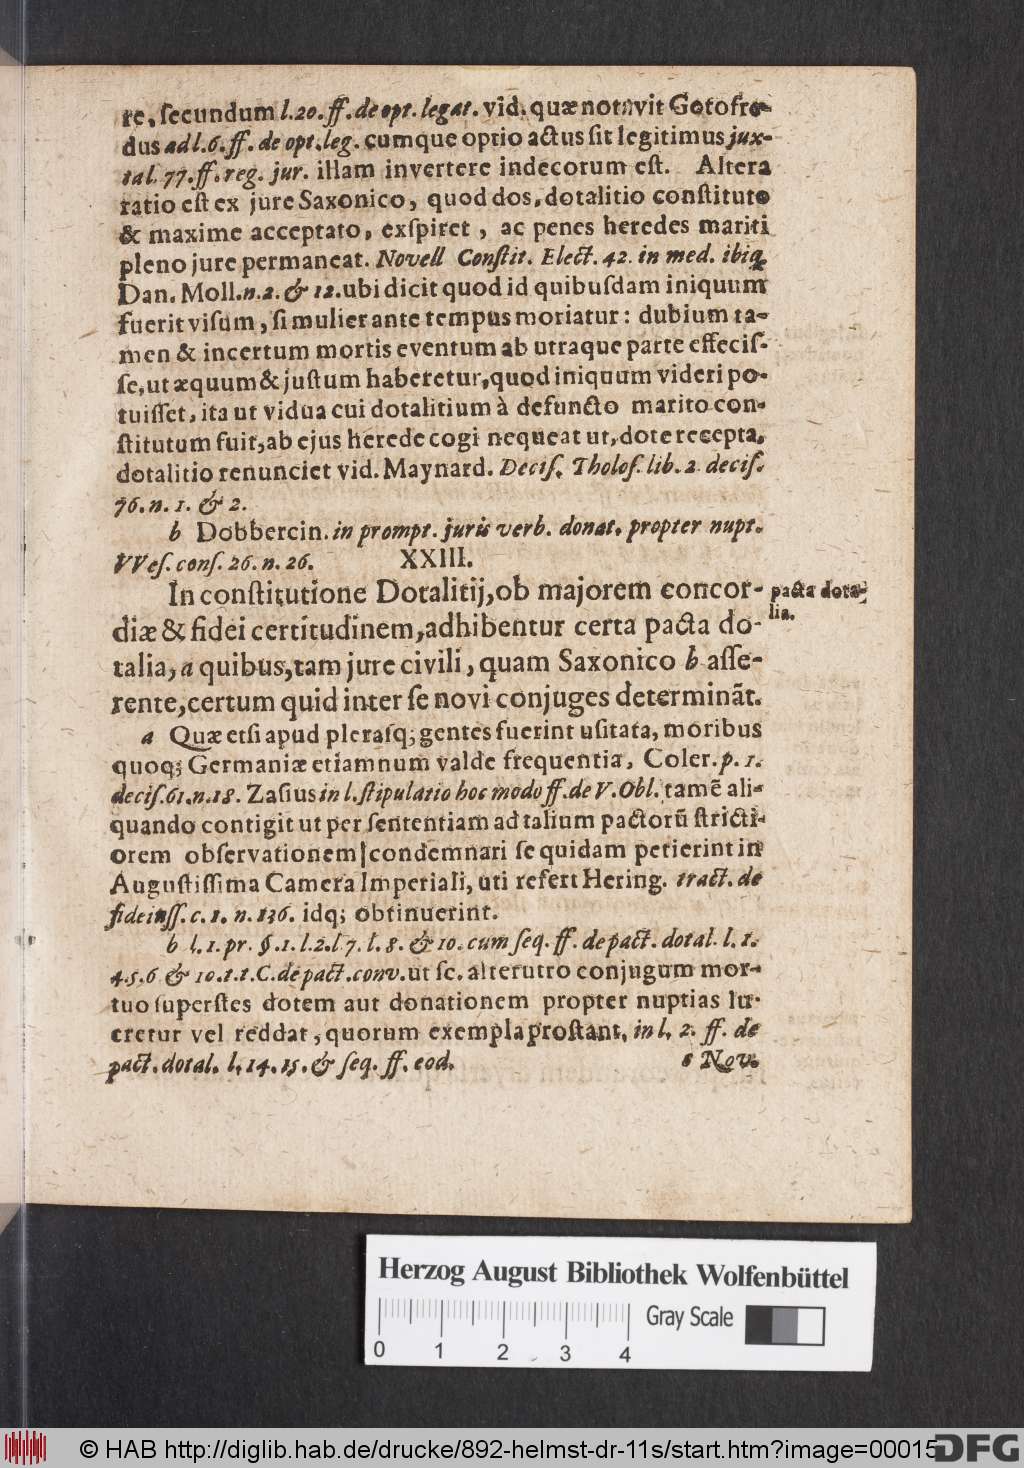 re, ſecundum l.20. ff. de opt. legat. vid. quæ notavit Gotofre-
dus ad l.6. ff. de opt. leg. cumque optio actus ſit legitimus jux-
ta l. 77. ff. reg. jur. illam invertere indecorum eſt. Altera
ratio eſt ex jure Saxonico, quod dos, dotalitio conſtituto
& maxime acceptato, exſpiret, ac penes heredes mariti
pleno jure permaneat. Novell Conſtit. Elect. 42. in med. ibiq́
Dan. Moll. n.2. & 12. ubi dicit quod id quibuſdam iniquum
fuerit viſum, ſi mulier ante tempus moriatur: dubium ta-
men & incertum mortis eventum ab utraque parte effeciſ-
ſe, ut æquum & juſtum haberetur, quod iniquum videri po-
tuiſſet, ita ut vidua cui dotalitium à defuncto marito con-
ſtitutum fuit, ab ejus herede cogi nequeat ut, dote recepta,
dotalitio renunciet vid. Maynard. Deciſ. Tholoſ. lib. 2. deciſ.
76. n. 1. & 2.
b Dobbercin. in prompt. juris verb. donat. propter nupt.
VVeſ. conſ. 26. n. 26.
XXIII.
In conſtitutione Dotalitij, ob majorem concor-
diæ & fidei certitudinem, adhibentur certa pacta do-
talia, a quibus, tam jure civili, quam Saxonico b aſſe-
rente, certum quid inter ſe novi conjuges determinãt.
pacta dota-
lia.
a Quæ etſi apud pleraſq; gentes fuerint uſitata, moribus
quoq; Germaniæ etiamnum valde frequentia, Coler. p. 1.
deciſ. 61. n. 18. Zaſius in l. ſtipulatio hoc modo ff. de V. Obl. tamẽ ali-
quando contigit ut per ſententiam ad talium pactorũ ſtricti-
orem obſervationem condemnari ſe quidam petierint in
Auguſtiſſima Camera Imperiali, uti refert Hering. tract. de
fideiuſſ. c. 1. n. 136. idq; obtinuerint.
b l. 1. pr. §. 1. l. 2. l 7. l. 8. & 10. cum ſeq. ff. de pact. dotal. l. 1.
4. 5. 6 & 10. t. t. C. de pact. conv. ut ſc. alterutro conjugum mor-
tuo ſuperſtes dotem aut donationem propter nuptias lu-
cretur vel reddat, quorum exempla proſtant, in l. 2. ff. de
pact. dotal. l. 14. 15. & ſeq. ff. eod.
8 Nov.
Herzog August Bibliothek Wolfenbüttel
Gray Scale
0 1 2 3 4
© HAB http://diglib.hab.de/drucke/892-helmst-dr-11s/start.htm?image=00015
DFG